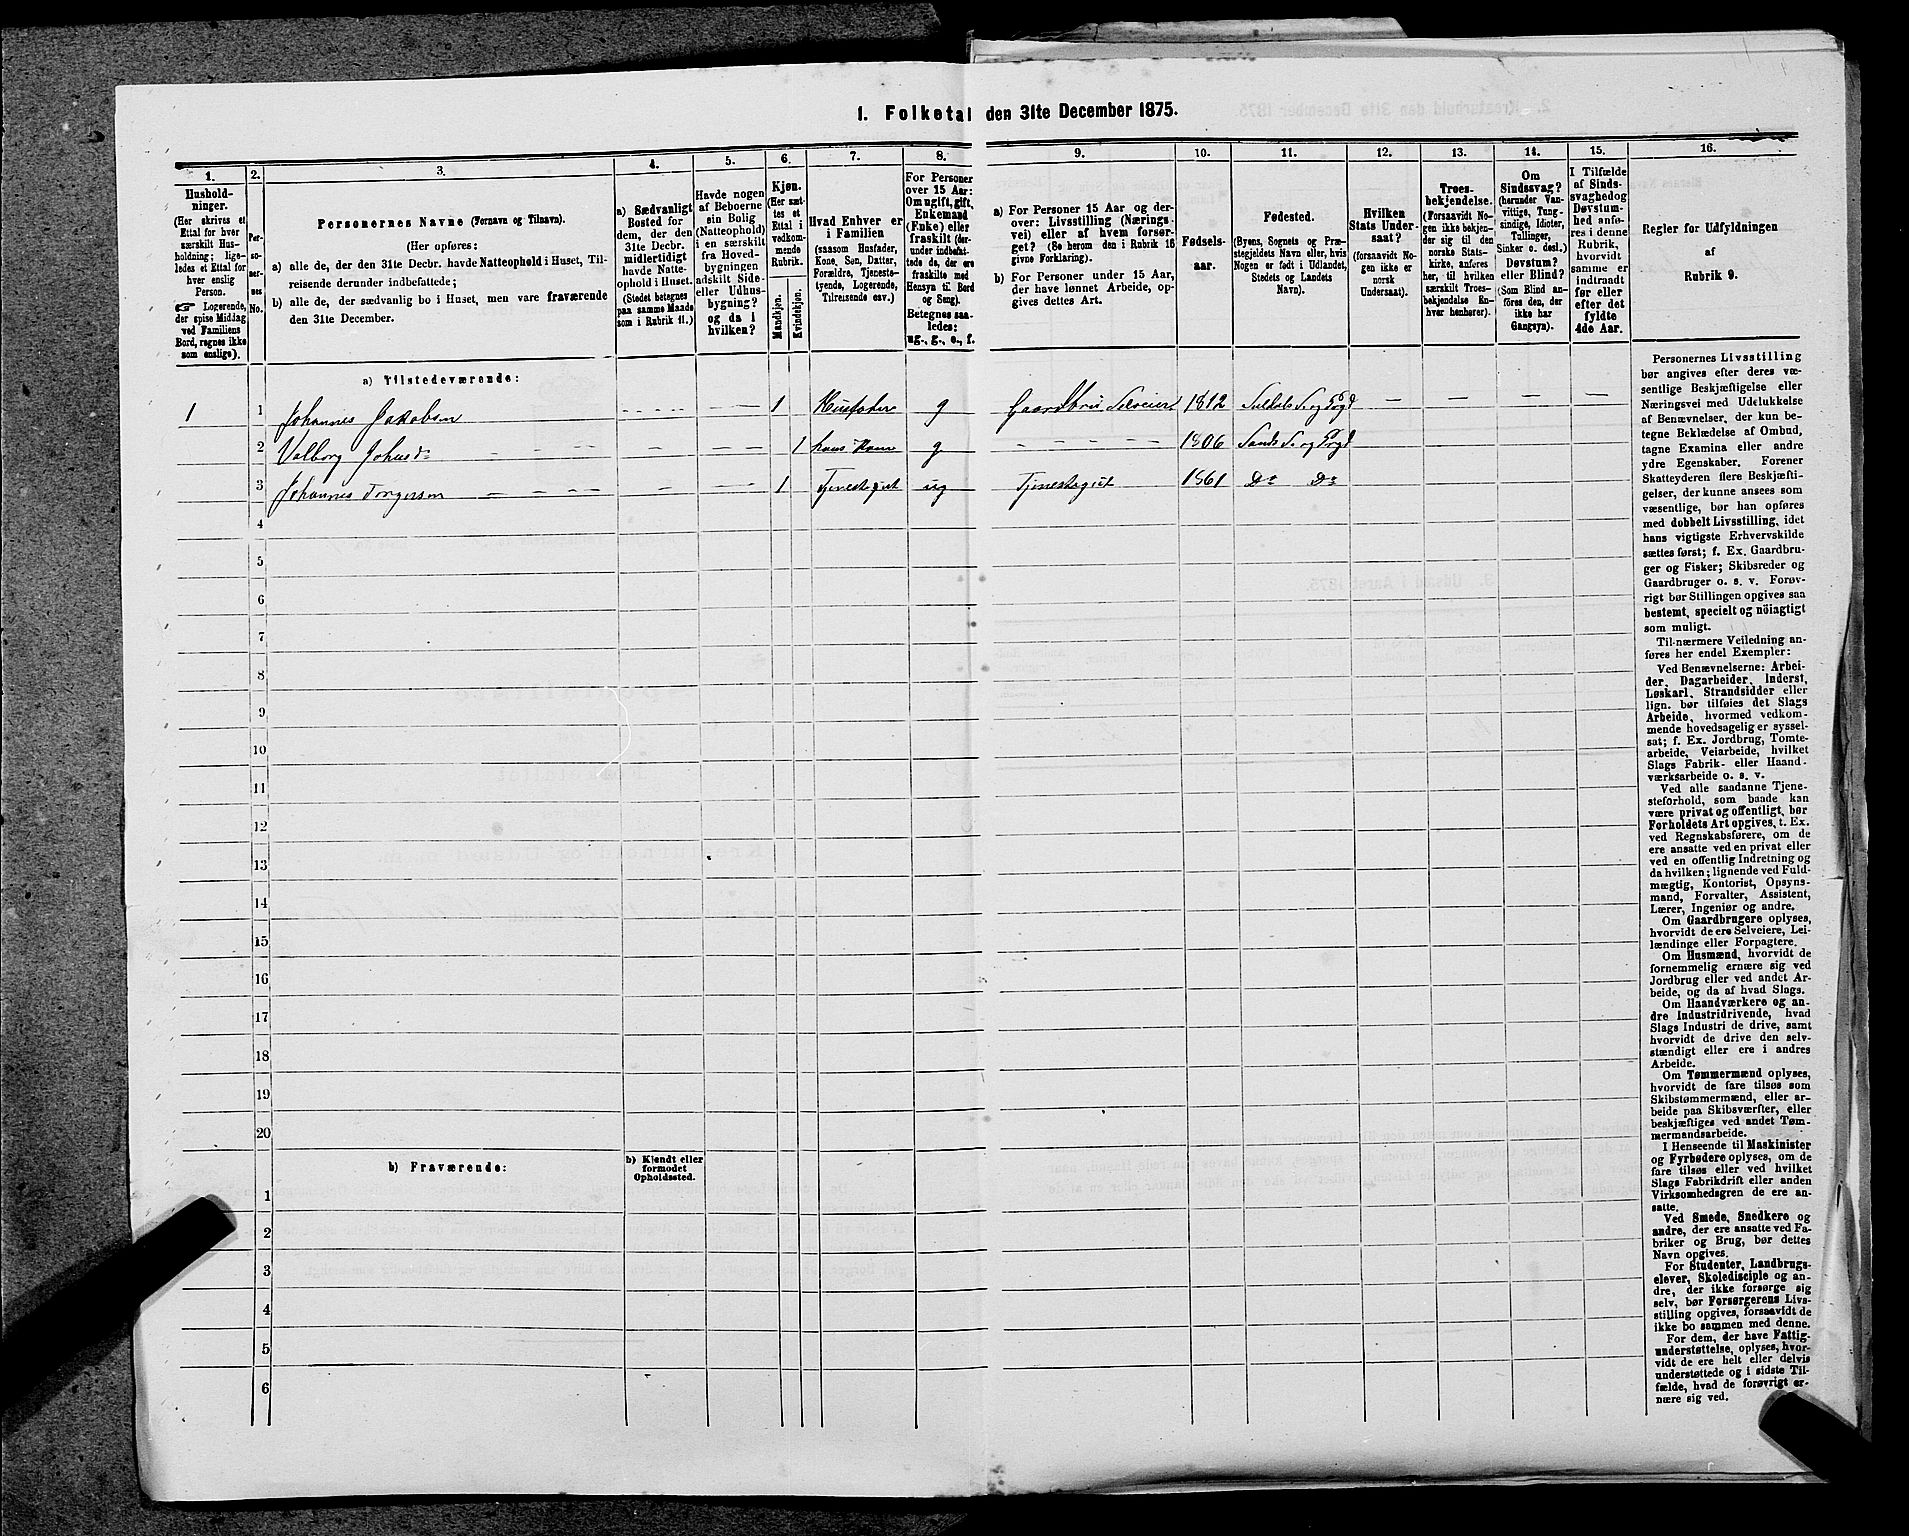 1. Folketal den 31te December 1875.
1.
Hushold-
ninger.
(Her skrives et
Ettal for hver
særskilt Hus-
holdning; lige-
ledes et Ettal for
hver enslig
Person.
☞ Logerende,
der spise Middag
ved Familiens
Bord, regnes ikke
som enslige).
2.
Per-
so-
ner-
nes
No.
3.
Personernes Navne (Fornavn og Tilnavn).
(Her opføres:
a) alle de, der den 31te Decbr. havde Natteophold i Huset, Til-
reisende derunder indbefattede;
b) alle de, der sædvanlig bo i Huset, men vare fraværende
den 31te December.
4.
a) Sædvanligt
Bosted for
dem, der den
31te Decbr.
midlertidigt
havde Natte-
ophold i Huset.
(Stedet betegnes
paa samme Maade
som i Rubrik 11.)
5.
Havde nogen
af Beboerne
sin Bolig
(Natteophold)
i en særskilt
fra Hoved-
bygningen
adskilt Side-
eller Udhus-
bygning?
og da i
hvilken?
6.
Kjøn.
(Her sæt-
tes et
Ettal i
vedkom-
mende
Rubrik.
Mandkjøn.
Kvindekjøn.
7.
Hvad Enhver er
i Familien
(saasom Husfader,
Kone, Søn, Datter,
Forældre, Tjeneste-
tyende, Logerende,
Tilreisende osv.)
8.
For Personer
over 15 Aar:
Om ugift, gift,
Enkemand
(Enke) eller
fraskilt (der-
under indbefat-
tede de, der ere
fraskilte med
Hensyn til Bord
og Seng).
Betegnes saa-
ledes:
ug., g., e., f.
9.
a) For Personer 15 Aar og der-
over: Livsstilling (Nærings-
vei) eller af hvem forsør-
get? (Se herom den i Rubrik 16
givne Forklaring).
b) For Personer under 15 Aar,
der have lønnet Arbeide, op-
gives dettes Art.
10.
Fødsels-
aar.
11.
Fødested.
(Byens, Sognets og Præ-
stegjeldets Navn eller, hvis
Nogen er født i Udlandet,
Stedets og Landets
Navn).
12.
Hvilken
Stats Under-
saat?
(forsaavidt No-
gen ikke er
norsk
Undersaat).
13.
Troes-
bekjendelse.
(Forsaavidt No-
gen ikke bekjen-
der sig til den
norske Stats-
kirke, anføres
her, til hvilken
særskilt Troes-
bekjendelse En-
hver henhører).
14.
Om
Sindssvag?
(herunder Van-
vittige, Tung-
sindige, Idioter,
Tullinger,
Sinker o. desl.)
Døvstum?
eller Blind?
(Som Blind an-
føres den, der
ikke har
Gangsyn).
15.
I Tilfælde
af Sinds-
svaghed og
Døvstum-
hed anfø-
res i denne
Rubrik,
hvorvidt
samme er
indtraadt
før eller
efter det
fyldte
4de Aar.
16.
Regler for Udfyldningen
af
Rubrik 9.
a) Tilstedeværende:
1 1 Johannes Jakobsen 1 Husfader g Gaardbru Selveier 1812 Suldals S. og Prgd
2 Valborg Johnsdr 1 hans Kone g 1806 Sands S. og Prgd
3 Johannes Torgersen 1 Tjenestegut ug Tjenestegut 1861 Do Do
4
5
6
7
8
9
10
11
12
13
14
15
16
17
18
19
20
b) Fraværende:
b) Kjendt eller
formodet
Opholdssted.
1
2
3
4
5
6
Personernes Livsstilling
bør angives efter deres væ-
sentlige Beskjæftigelse eller
Næringsvei med Udelukkelse
af Benævnelser, der kun be-
tegne Beklædelse af Ombud,
tagne Examina eller andre
ydre Egenskaber. Forener
Skatteyderen flere Beskjæfti-
gelser, der kunne ansees som
væsentlige, bør han opføres
med dobbelt Livsstilling, idet
hans vigtigste Erhvervskilde
sættes først; f. Ex. Gaardbru-
ger og Fisker; Skibsreder og
Gaardbruger o. s. v. Forøv-
rigt bør Stillingen opgives saa
bestemt, specielt og nöiagtigt
som muligt.
Til nærmere Veiledning an-
føres her endel Exempler:
Ved Benævnelserne: Arbei-
der, Dagarbeider, Inderst,
Løskarl, Strandsidder eller
lign. bør tilføies det Slags
Arbeide, hvormed vedkom-
mende hovedsagelig er syssel-
sat; f. Ex. Jordbrug, Tomte-
arbeide, Veiarbeide, hvilket
Slags Fabrik- eller Haand-
værksarbeide o. s. v.
Ved alle saadanne Tjene-
steforhold, som baade kan
være privat og offentligt, bør
Forholdets Art opgives, t. Ex.
ved Regnskabsførere, om de
ere ansatte ved en privat eller
ved en offentlig Indretning og
da hvilken; lignende ved Fuld-
mægtig, Kontorist, Opsyns-
mand, Forvalter, Assistent,
Lærer, Ingeniør og andre.
Om Gaardbrugere oplyses,
hvorvidt de ere Selveiere, Lei-
lændinge eller Forpagtere.
Om Husmænd, hvorvidt de
fornemmelig ernære sig ved
Jordbrug eller ved andet Ar-
beide, og da af hvad Slags.
Om Haandværkere og an-
dre Industridrivende, hvad
Slags Industri de drive, samt
hvorvidt de drive den selv-
stændigt eller ere i andres
Arbeide.
Om Tømmermænd oplyses,
hvorvidt de fare tilsøs som
Skibstømmermænd, eller ar-
beide paa Skibsværfter, eller
beskjæftiges ved andet Tøm-
mermandsarbeide.
I Henseende til Maskinister
og Fyrbødere oplyses, om de
fare tilsøs eller ved hvilket
Slags Fabrikdrift eller anden
Virksomhedsgren de ere an-
satte.
Ved Smede, Snedkere og
andre, der ere ansatte ved Fa-
briker og Brug, bør dettes
Navn opgives.
For Studenter, Landbrugs-
elever, Skoledisciple og an-
dre, der ikke forsørge sig
selv, bør Forsørgerens Livs-
stilling opgives, forsaavidt de
ikke bo sammen med denne.
For dem, der have Fattig-
understøttelse, oplyses, hvor-
vidt de ere helt eller delvis
understøttede og i sidste Til-
fælde, hvad de forøvrigt er-
nære sig ved.